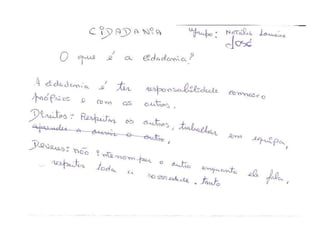 CIDADANIA
Grupo: Natália Laurino
José
O que é a cidadania?
A cidadania é ter responsabilidade connosco
próprios e com os outros.
Direitos: Respeitar os outros, trabalhar em equipa,
aprender a ouvir o outro,
Deveres: não interromper o outro enquanto ele fala,
respeitar toda a sociedade,